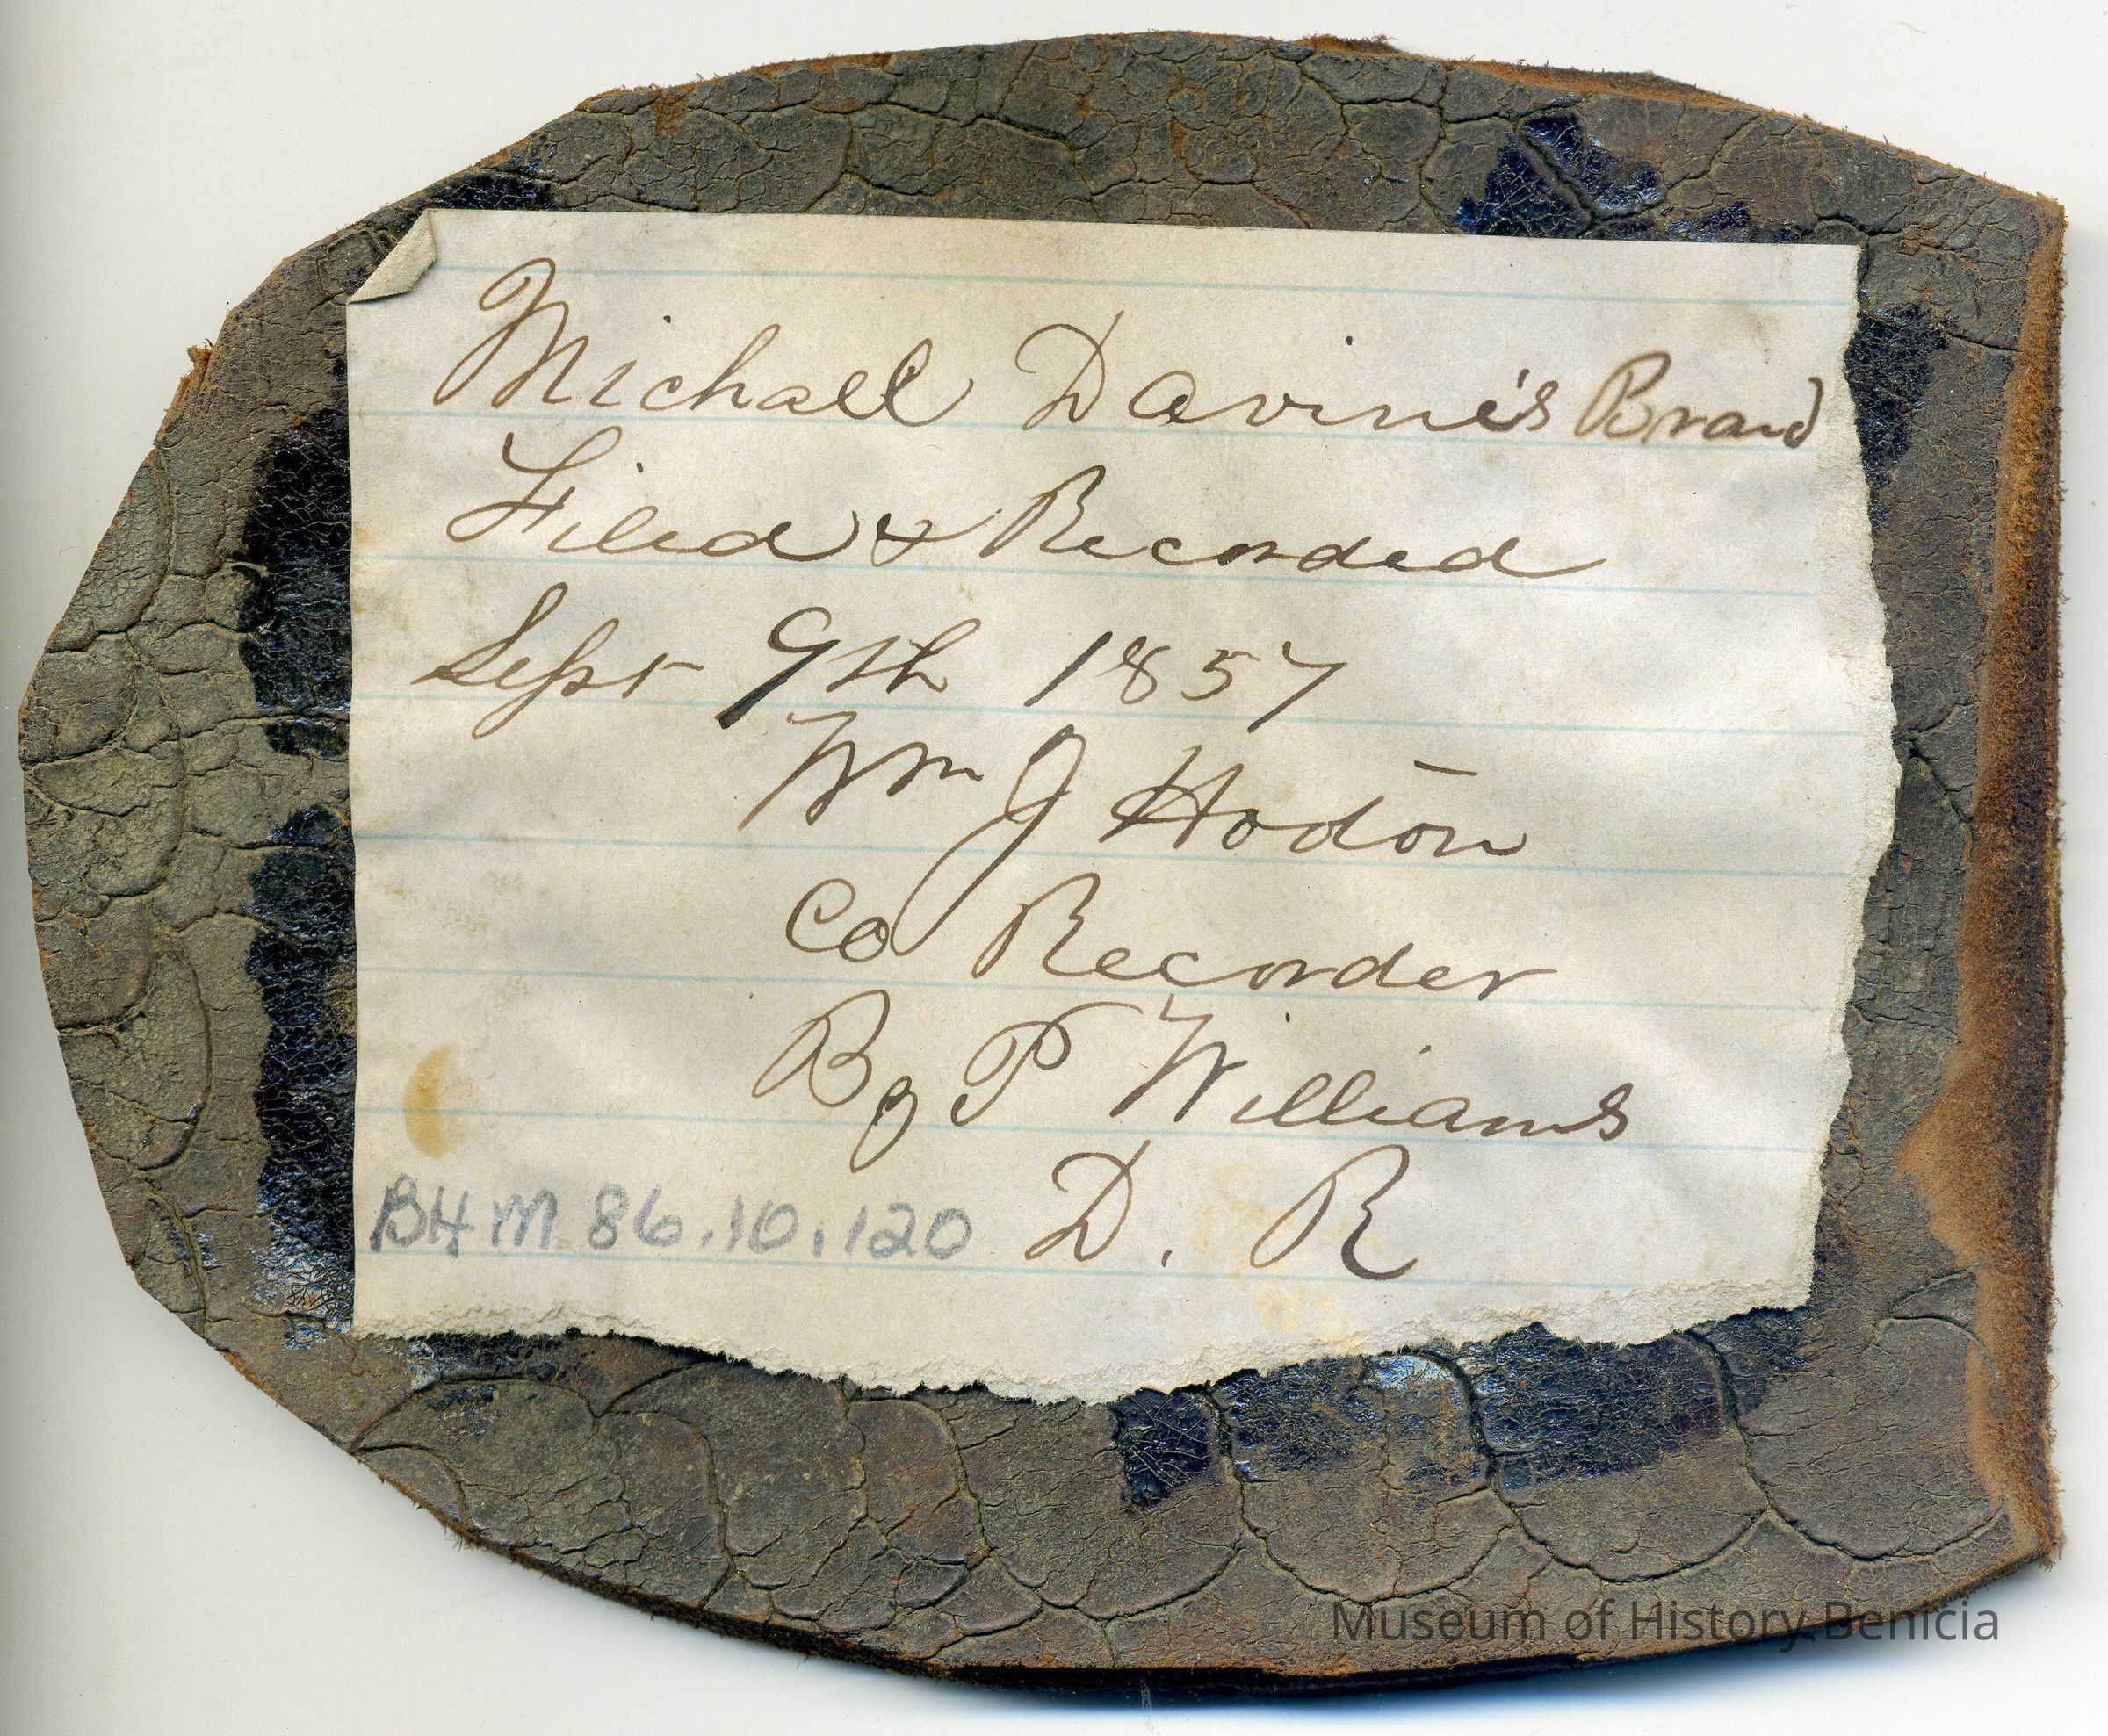 Michael Davine's Brand
Filed & Recorded
Sept 9th 1857
Wm J Hooton
Co Recorder
By P Williams
D. R
BHM 86.10.120
Museum of History Benicia